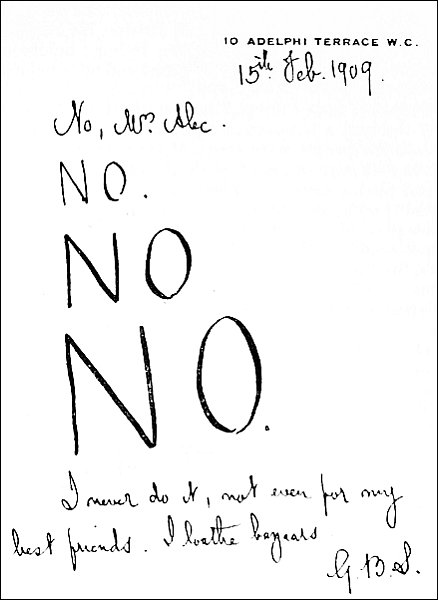 10 ADELPHI TERRACE W.C.
15th Feb. 1909.
No, Mrs Alec.
NO.
NO
NO.
I never do it, not even for my
best friends. I loathe bazaars
G.B.S.